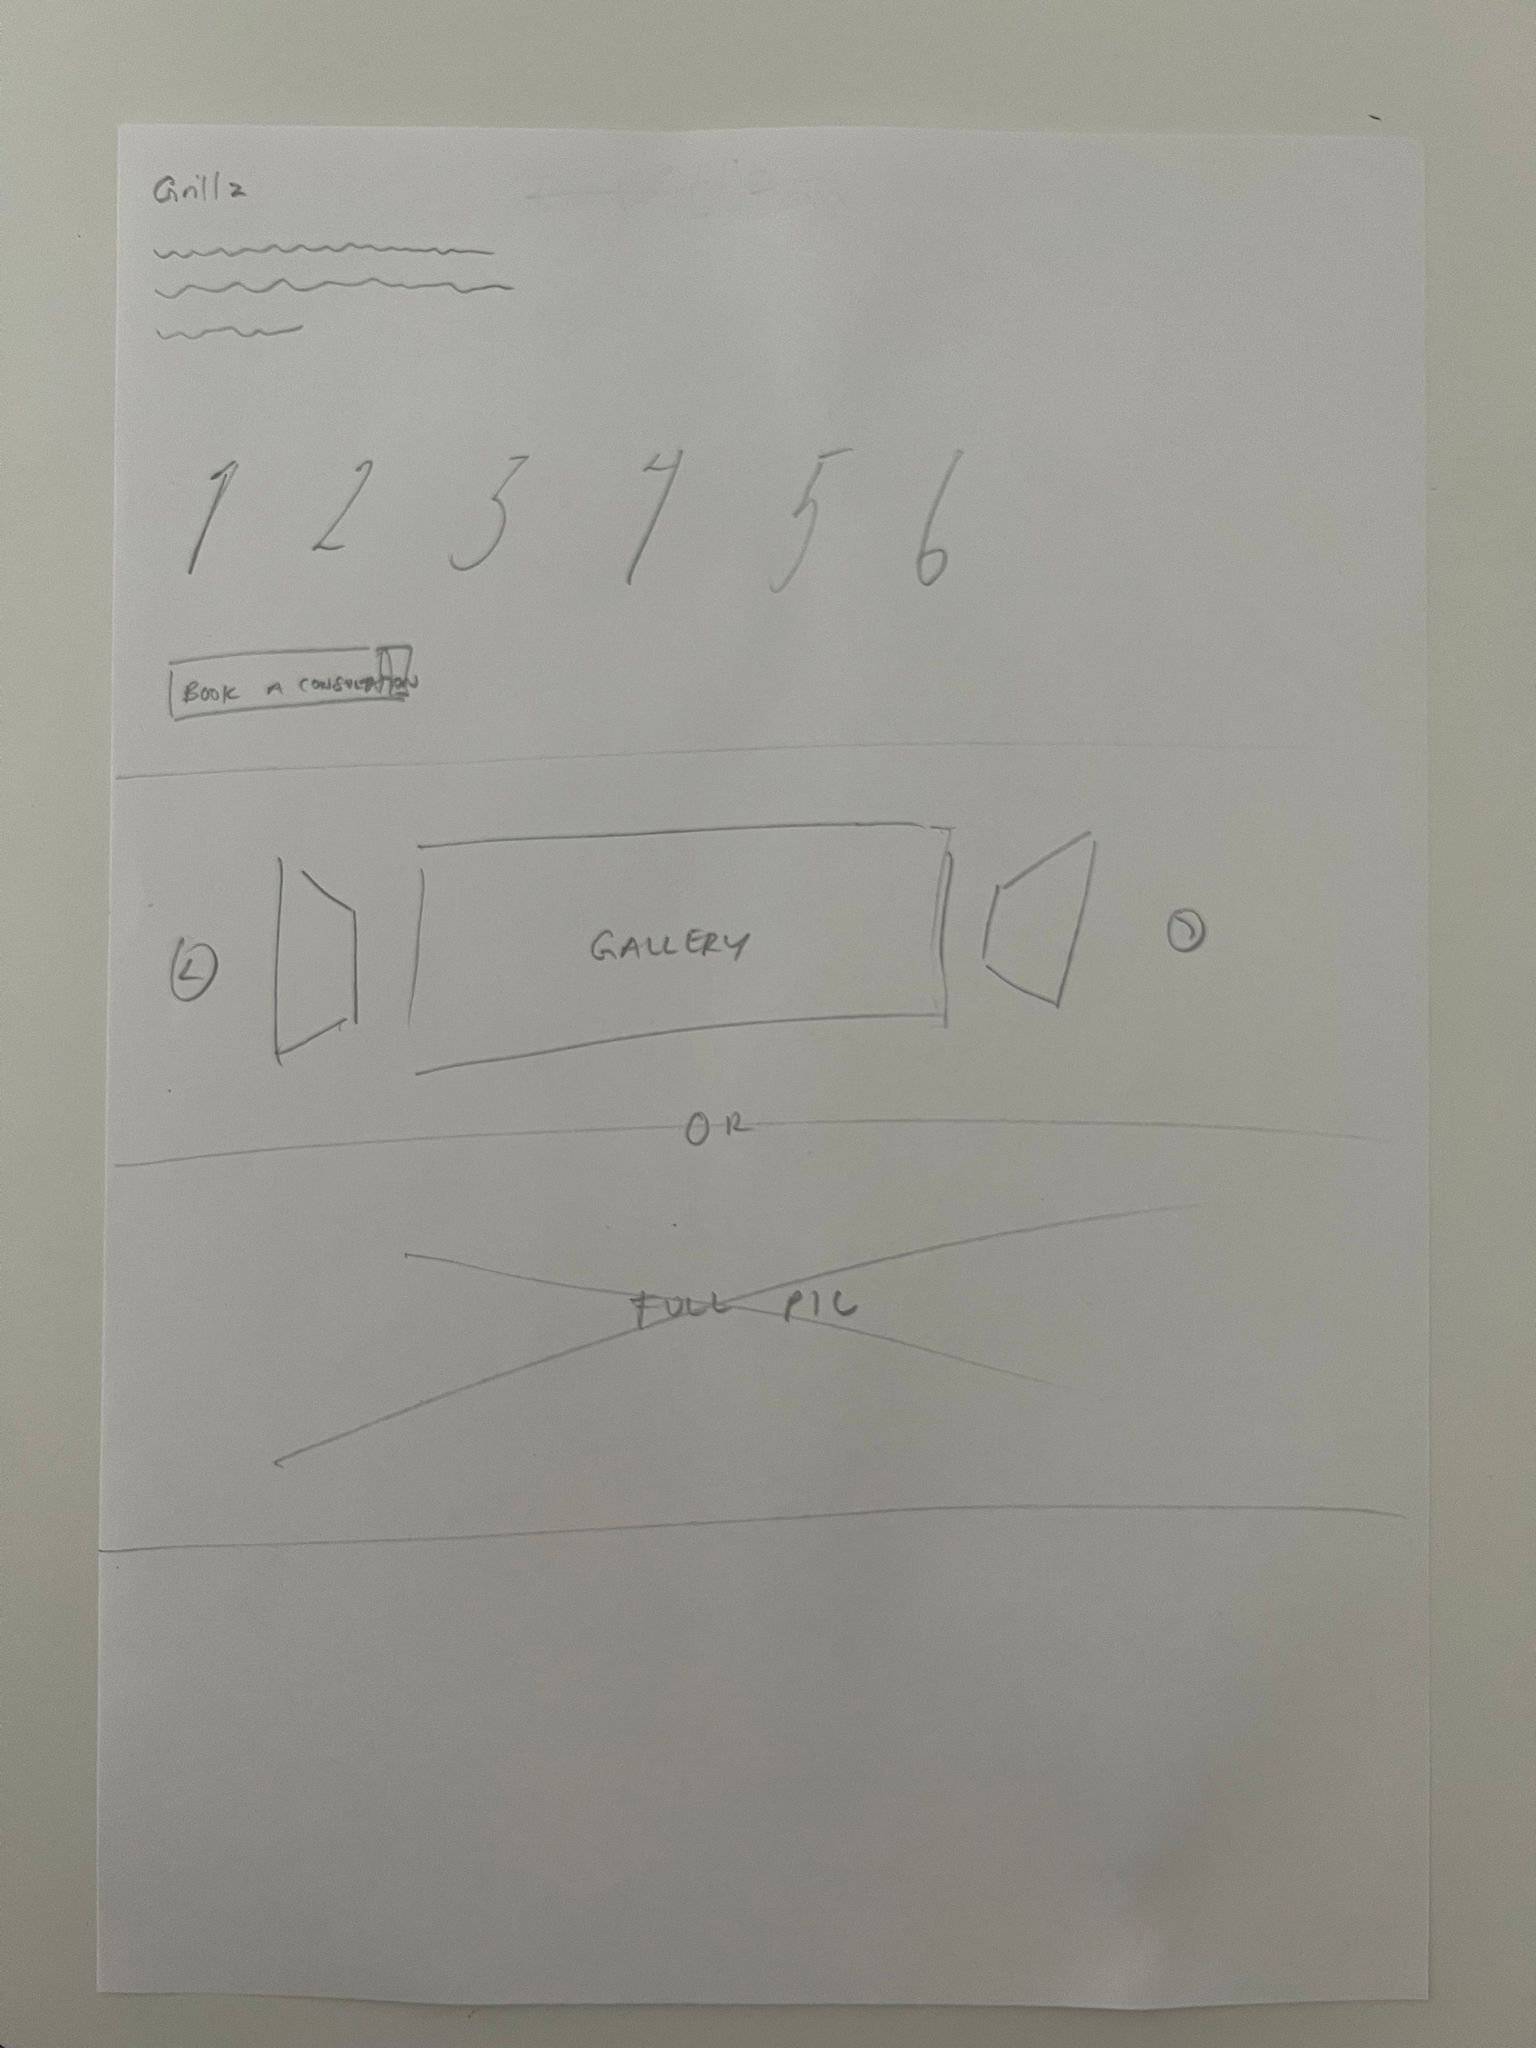 Grillz
1 2 3 4 5 6
BOOK A CONSULTATION
< GALLERY >
OR
FULL PIC